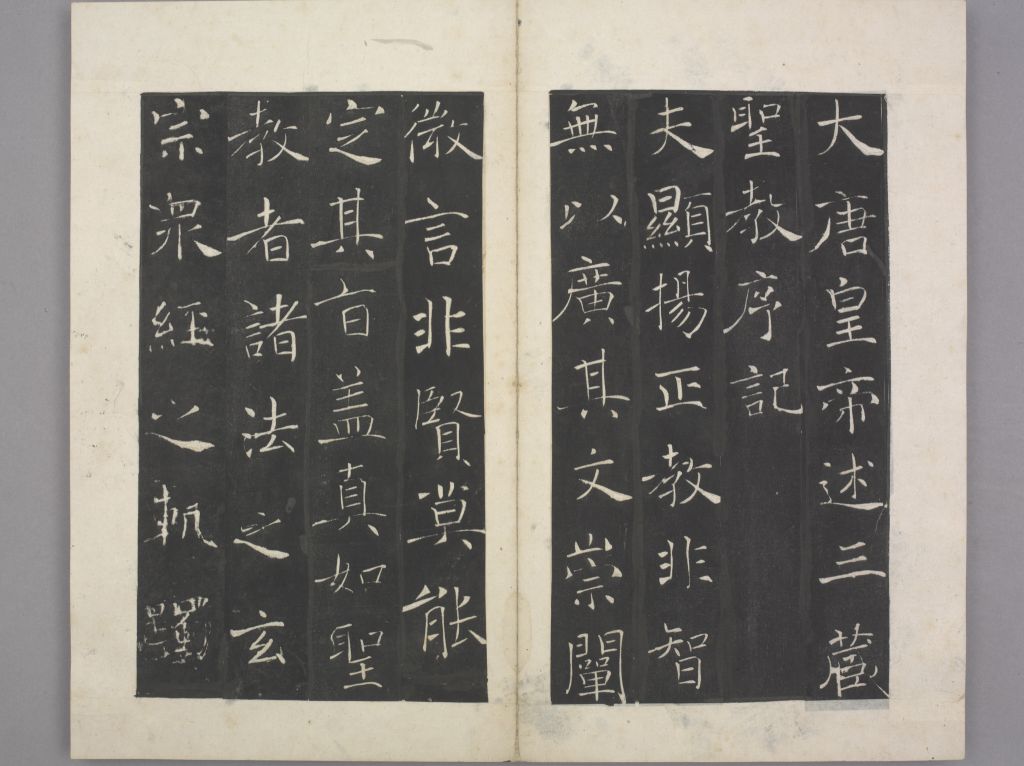 大唐皇帝述三藏
聖教序記
夫顯揚正教非智
無以廣其文崇闡
微言非賢莫能
定其旨盖真如聖
教者諸法之玄
宗眾經之軌躅